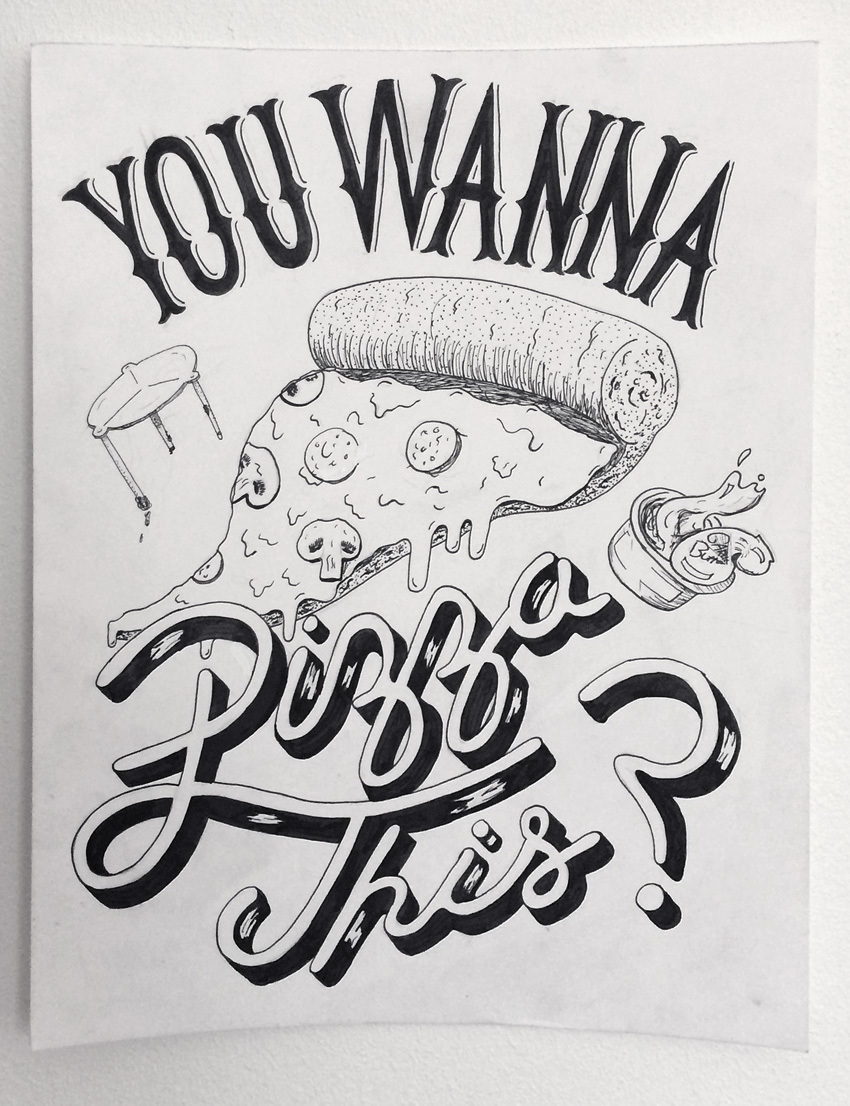 YOU WANNA
Pizza
This?